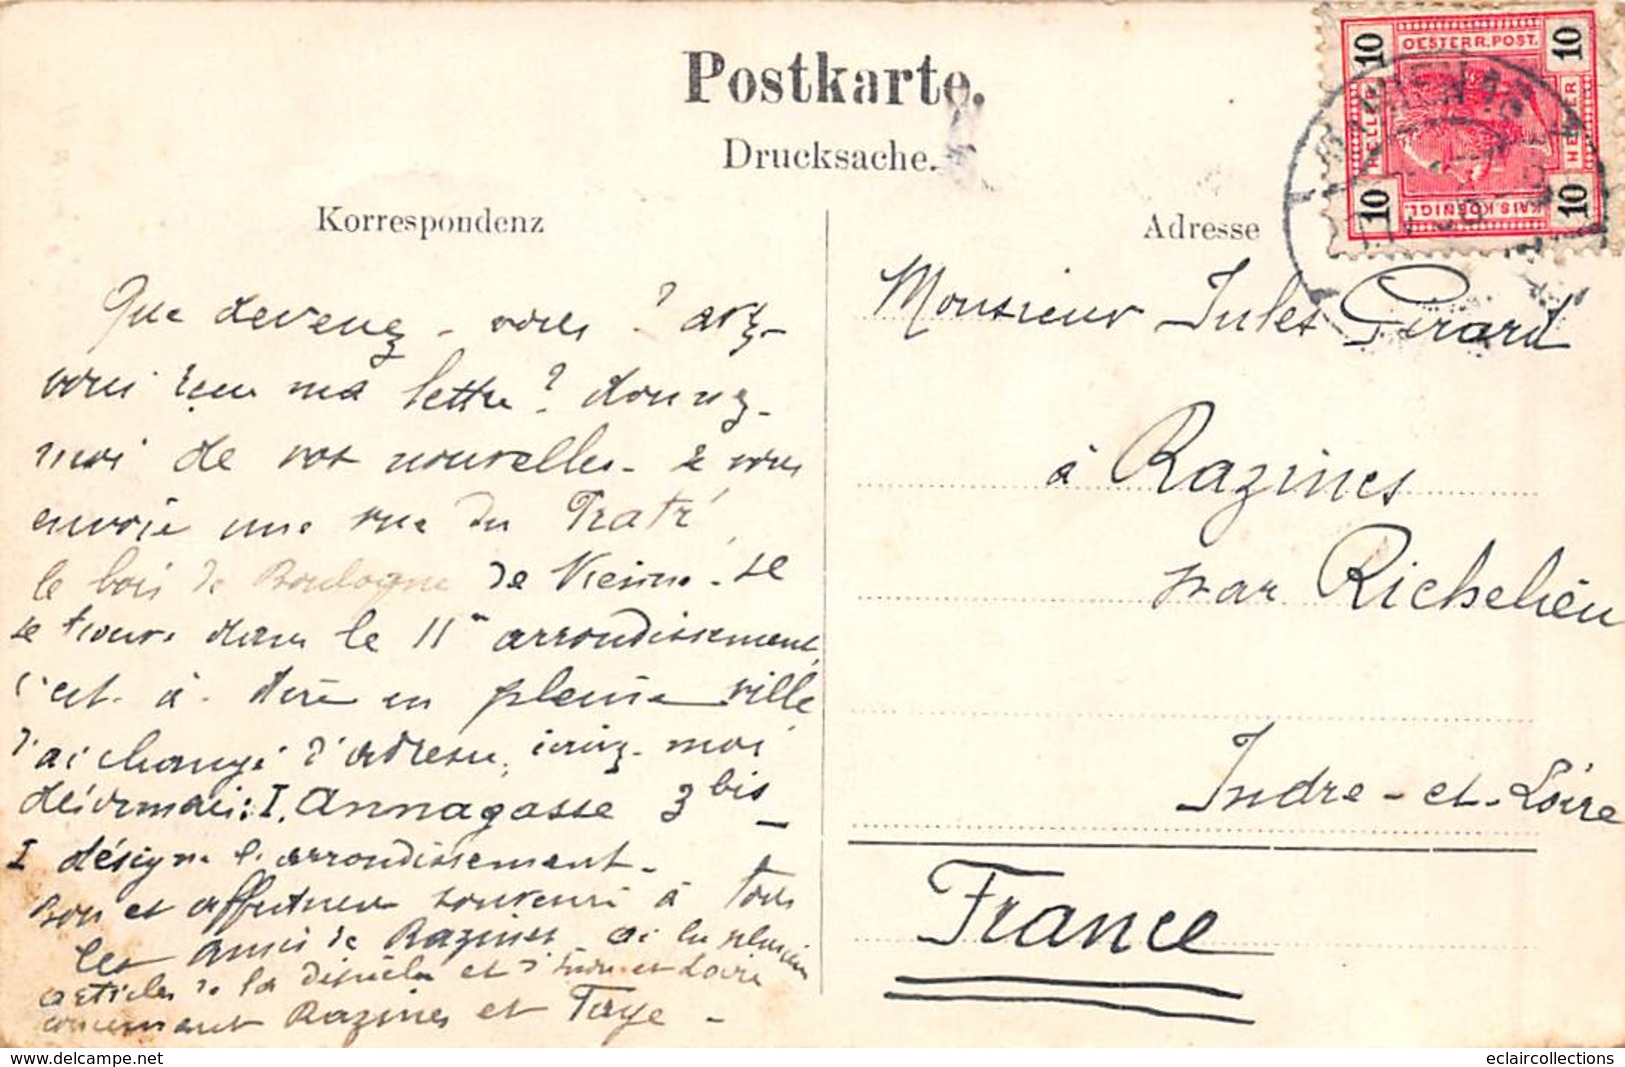 Postkarte.
Drucksache.
Korrespondenz
Adresse
10 OESTERR. POST. 10
HELLER HELLER
10 KAIS. KOENIGL. 10
Que devenez-vous ? avez-
vous reçu ma lettre ? donnez-
moi de vos nouvelles. Je vous
envoie une vue du Prater,
le bois de Boulogne de Vienne. Il
se trouve dans le II arrondissement,
c'est-à-dire en pleine ville
J'ai changé d'adresse, écrivez-moi
désormais : I. Annagasse 3 bis
I désigne l'arrondissement.
Bon et affectueux souvenir à tous
les amis de Razines. ai lu plusieurs
articles de la et d'Indre et Loire
concernant Razines et Faye -
Monsieur Jules Girard
à Razines
par Richelieu
Indre-et-Loire
France
eclaircollections